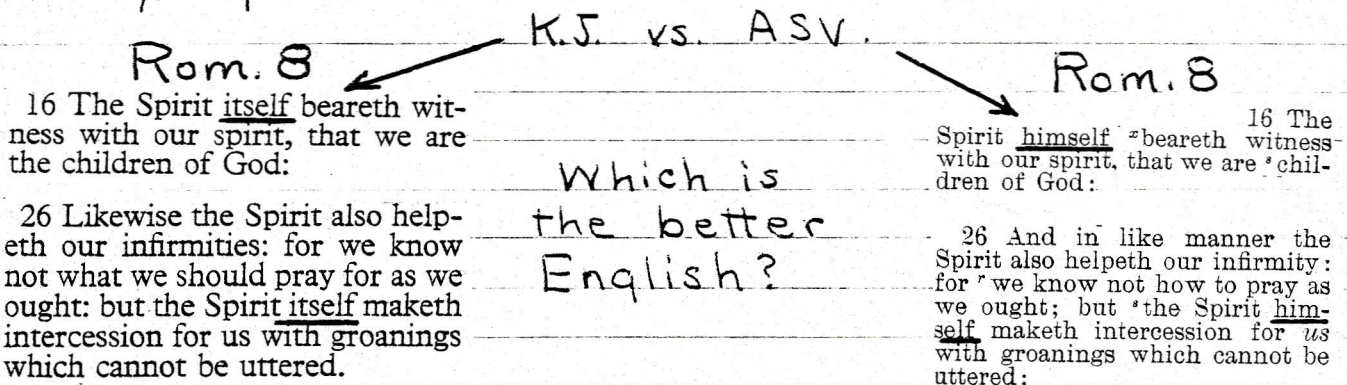 K.J. vs. ASV.
Rom. 8
16 The Spirit itself beareth wit-
ness with our spirit, that we are
the children of God:
26 Likewise the Spirit also help-
eth our infirmities: for we know
not what we should pray for as we
ought: but the Spirit itself maketh
intercession for us with groanings
which cannot be uttered.
Which is
the better
English?
Rom. 8
16 The
Spirit himself ˣbeareth witness
with our spirit, that we are ˢchil-
dren of God:
26 And in like manner the
Spirit also helpeth our infirmity:
for ʳwe know not how to pray as
we ought; but ˢthe Spirit him-
self maketh intercession for us
with groanings which cannot be
uttered: